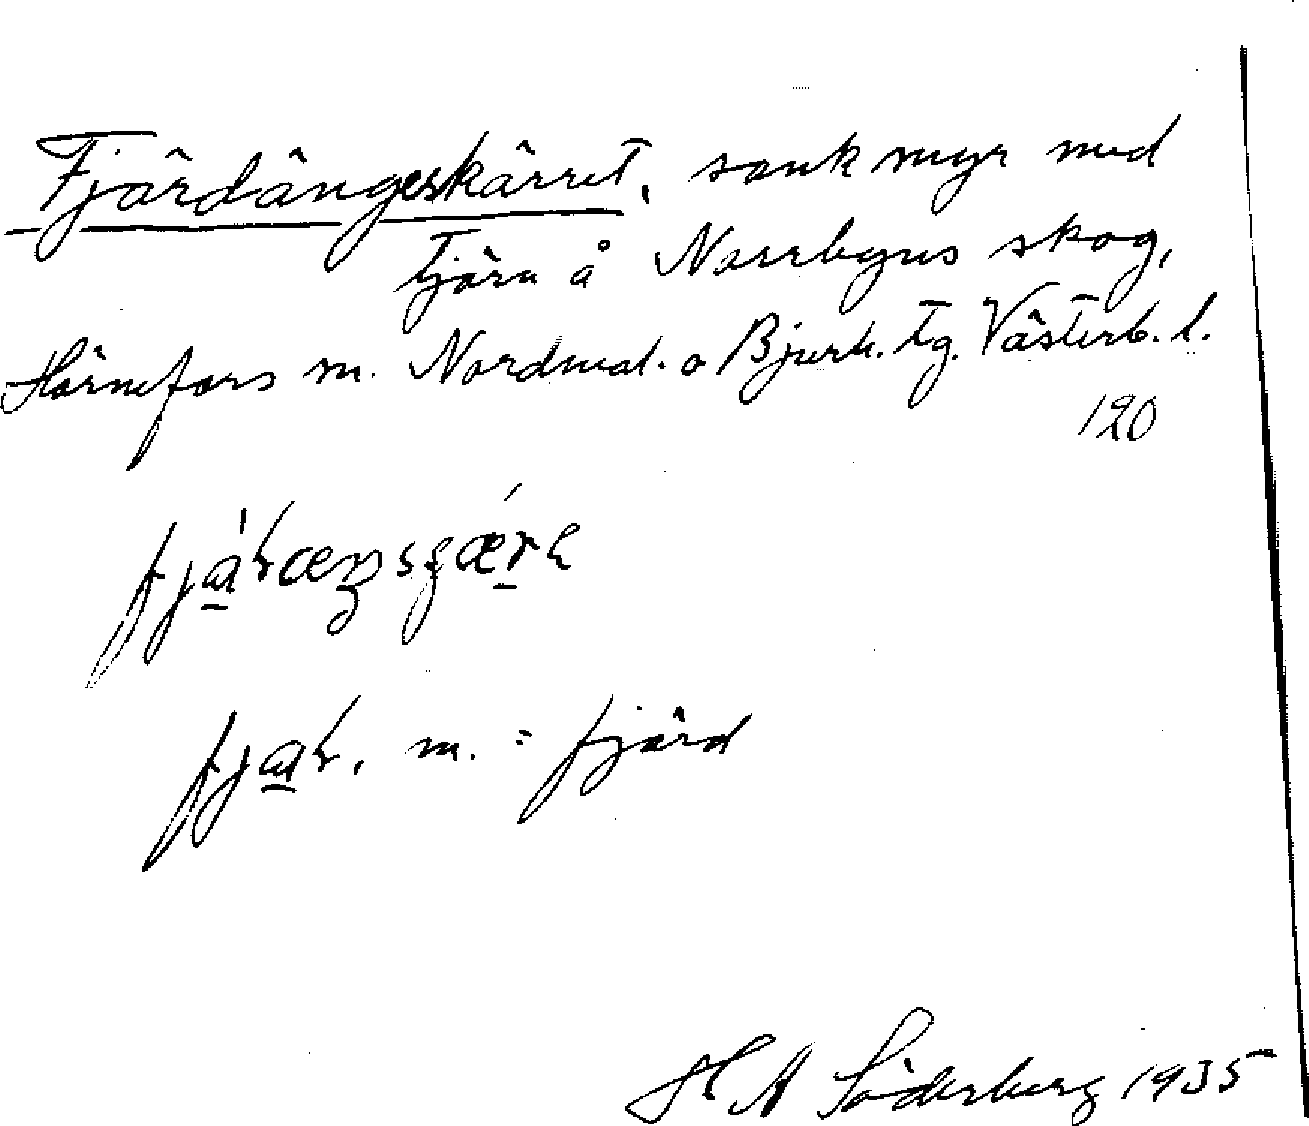 Fjärdängeskärret, sank myr med
tjärn å Norrbyns skog,
Hörnefors sn. Nordmal. o Bjurh. tg. Västerb. l.
120
fjäɽ, m. = fjärd
H A Söderberg 1935